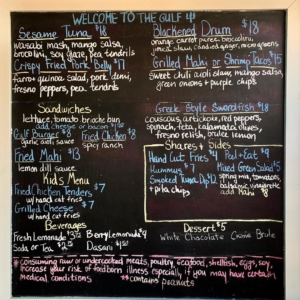 WELCOME TO THE GULF!
Sesame Tuna $18
wasabi mash, mango salsa,
broccolini, soy glaze, pea tendrils
Crispy Fried Pork Belly $17
farro + quinoa salad, pork demi,
fresno peppers, pea tendrils
Blackened Drum $18
orange carrot puree, broccolini,
candied ginger, micro greens
Grilled Mahi or Shrimp Tacos $15
sweet chili aioli slaw, mango salsa,
green onions + purple chips
Sandwiches
lettuce, tomato, brioche bun
add cheese or bacon
Gulf Burger Fried Chicken $8
garlic aioli sauce spicy ranch
Fried Mahi $13
lemon dill sauce
Kid's Menu
Fried Chicken Tenders $7
w/ hand cut fries
Grilled Cheese $7
w/ hand cut fries
Beverages
Fresh Lemonade Berry Lemonade $4
Soda or Tea $2 Dasani
Greek Style Swordfish $18
couscous, artichoke, red peppers,
spinach, feta, kalamata olives,
fresno relish, citrus lemon
Shares + Sides
Hand Cut Fries $4
Hummus $7
Smoked Tuna Dip
+ pita chips
Peel + Eat $9
Mixed Green Salad $5
spring mix, tomatoes,
balsamic vinaigrette
add Mahi $8
Dessert $5
White Chocolate Creme Brule
* consuming raw or undercooked meats, poultry, seafood, shellfish, eggs, may
increase your risk of foodborn illness especially if you may have certain
medical conditions ** contains peanuts